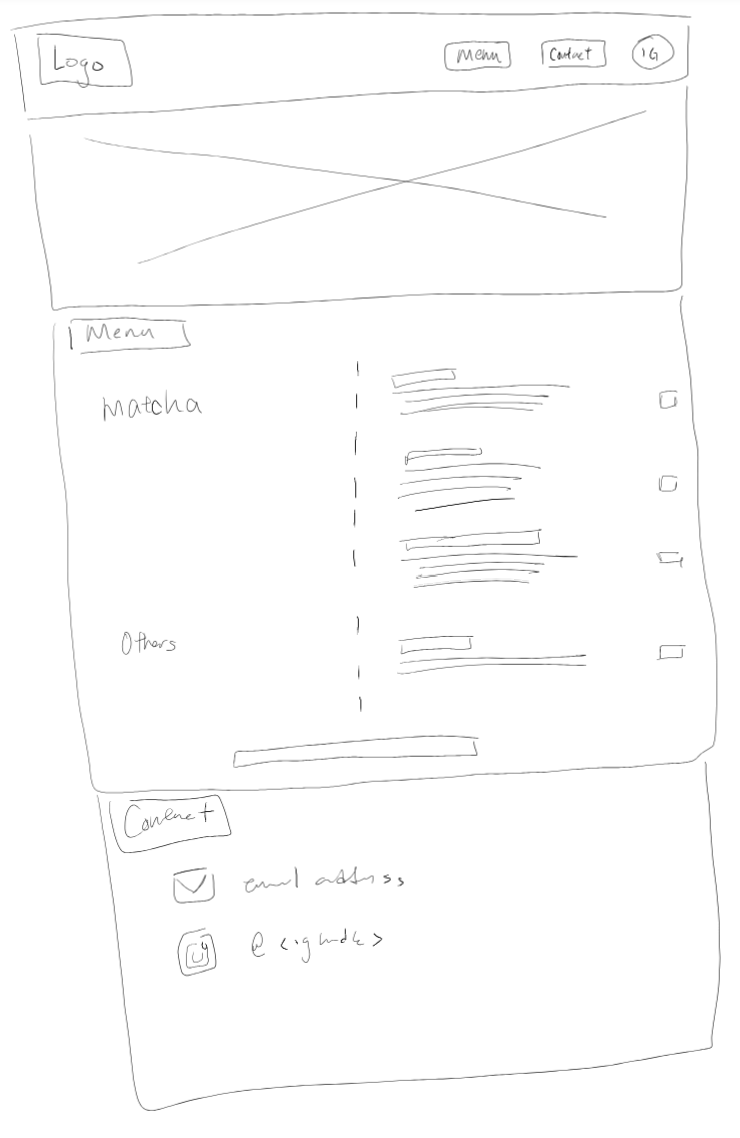 Logo
Menu
Contact
IG
Menu
Matcha
Others
Contact
email address
@ <ig hndle>